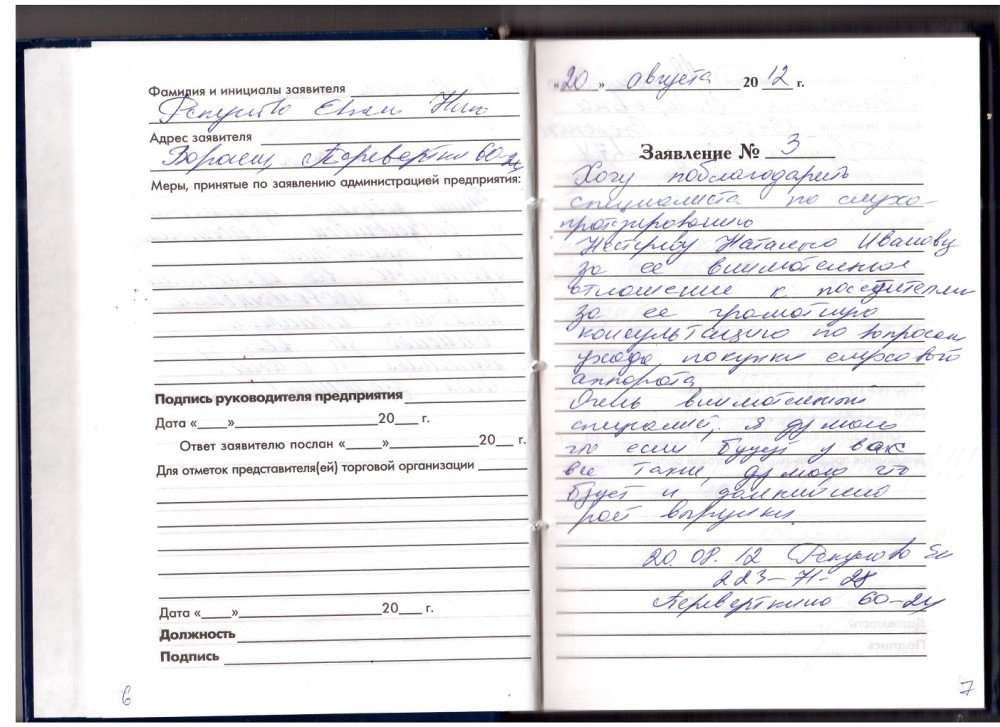 Фамилия и инициалы заявителя
Адрес заявителя
Воронеж, 60-24
Меры, принятые по заявлению администрацией предприятия:
Подпись руководителя предприятия
Дата «____»____________20___ г.
Ответ заявителю послан «____»____________20___ г.
Для отметок представителя(ей) торговой организации
Дата «____»____________20___ г.
Должность
Подпись
6
«20» августа 2012 г.
Заявление № 3
Хочу поблагодарить
специалиста по слухо-
протезированию
Нестерову Наталью Ивановну
за ее внимательное
отношение к посетителям
за ее грамотную
консультацию по вопросам
ухода, покупки слухового
аппарата
Очень внимательный
я думаю
что если будут у вас
все такие, думаю что
будет и
рост выручки
20.08.12
223-71-28
60-24
7